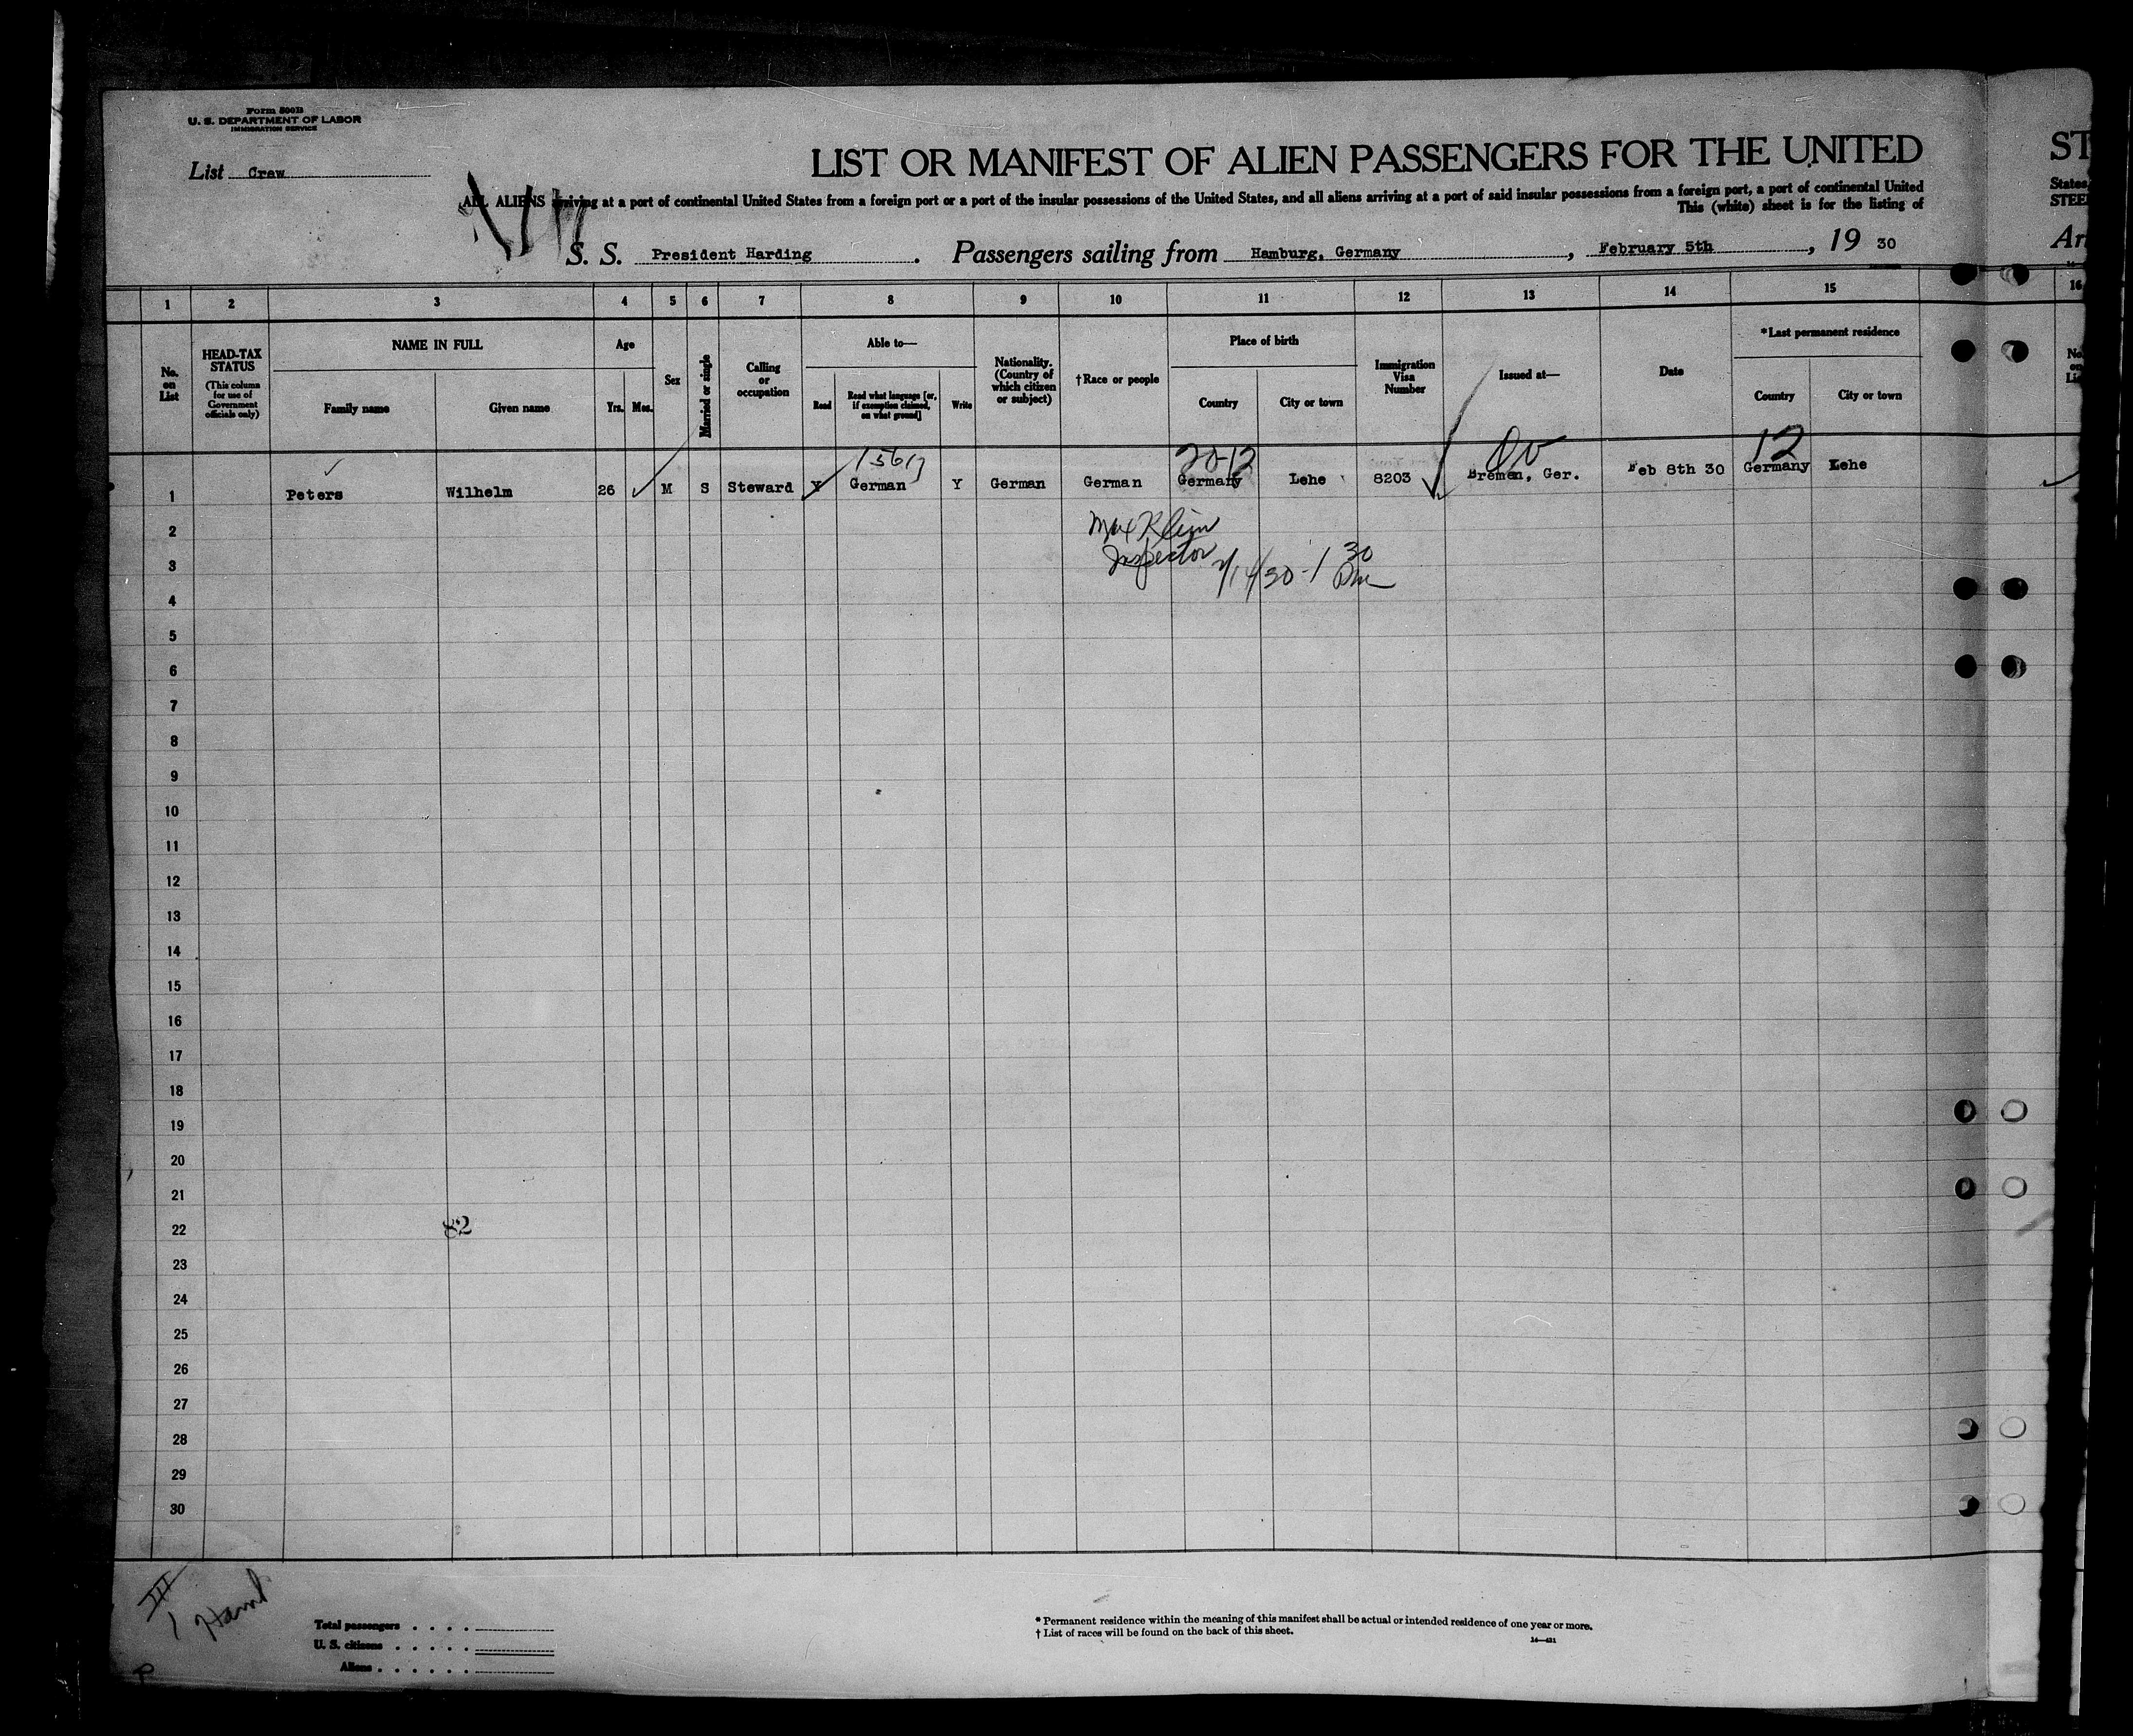 Form 500B
U. S. DEPARTMENT OF LABOR
IMMIGRATION SERVICE
List Crew
LIST OR MANIFEST OF ALIEN PASSENGERS FOR THE UNITED
ST
ALL ALIENS arriving at a port of continental United States from a foreign port or a port of the insular possessions of the United States, and all aliens arriving at a port of said insular possessions from a foreign port, a port of continental United
States,
This (white) sheet is for the listing of
STEE
S. S. President Harding. Passengers sailing from Hamburg, Germany, February 5th, 19 30
Arr
1 2 3 4 5 6 7 8 9 10 11 12 13 14 15 16
No. on List
HEAD-TAX STATUS
(This column for use of Government officials only)
NAME IN FULL
Family name
Given name
Age
Yrs. Mos.
Sex
Married or single
Calling or occupation
Able to—
Read
Read what language [or, if exemption claimed, on what ground]
Write
Nationality. (Country of which citizen or subject)
†Race or people
Place of birth
Country
City or town
Immigration Visa Number
Issued at—
Date
*Last permanent residence
Country
City or town
No. on Li
20-12
12
1 Peters Wilhelm 26 M S Steward Y German Y German German Germany Lehe 8203 Bremen, Ger. Feb 8th 30 Germany Lehe
2
Max Klein
3
Inspector 2/14/30 - 1 30 Pm
4
5
6
7
8
9
10
11
12
13
14
15
16
17
18
19
20
21
22
82
23
24
25
26
27
28
29
30
III
1 Hamb
Total passengers . . . .
U. S. citizens . . . . .
Aliens . . . . . .
* Permanent residence within the meaning of this manifest shall be actual or intended residence of one year or more.
† List of races will be found on the back of this sheet.
14—421